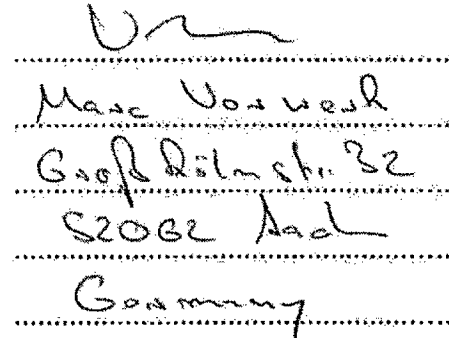 Marc Vorwerk
Großkölnstr. 32
52062 Aach
Germany